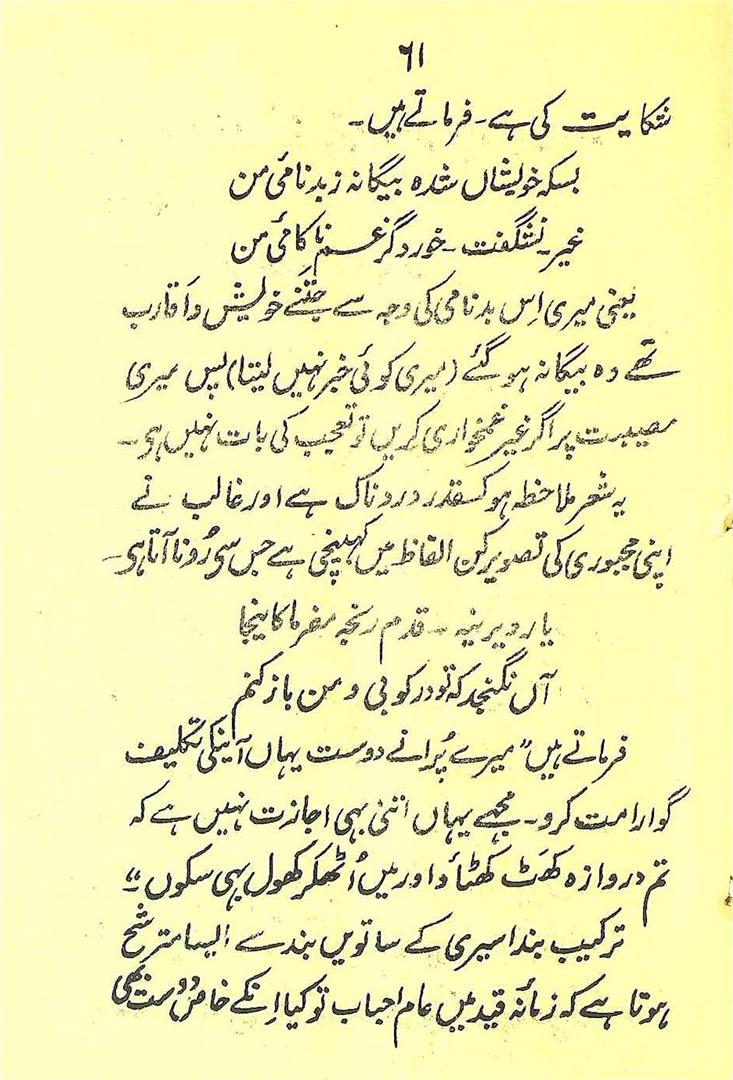 ٦١
شکایت کی ہے۔ فرماتے ہیں۔
بسکہ خویشاں شدہ بیگانہ ز بدنامیٔ من
غیر۔ نشگفت۔ خورد گر غم ناکامیٔ من
یعنی میری اِس بدنامی کی وجہ سے جتنے خویش و اَقارب
تھے وہ بیگانہ ہو گئے (میری کوئی خبر نہیں لیتا) پس میری
مصیبت پر اگر غیر غمخواری کریں تو تعجب کی بات نہیں ہی۔
یہ شعر ملاحظہ ہو کسقدر دردناک ہے اور غالب نے
اپنی مجبوری کی تصویر کن الفاظ میں کہینچی ہے جس سی رُونا آتا ہی۔
یار دیرینہ۔ قدم رنجہ مفرما کاینجا
آں نگنجد کہ تو در کوبی و من باز کنم
فرماتے ہیں "میرے پُرانے دوست یہاں آنیکی تکلیف
گوارا مت کرو۔ مجہے یہاں اتنی بہی اجازت نہیں ہے کہ
تم دروازہ کھَٹ کھٹاؤ اور میں اُٹھکر کھول بہی سکوں"
ترکیب بند اسیری کے ساتویں بند سے ایسا مترشح
ہوتا ہے کہ زمانۂ قید میں عام احباب تو کیا اِنکے خاص دُوست بھی